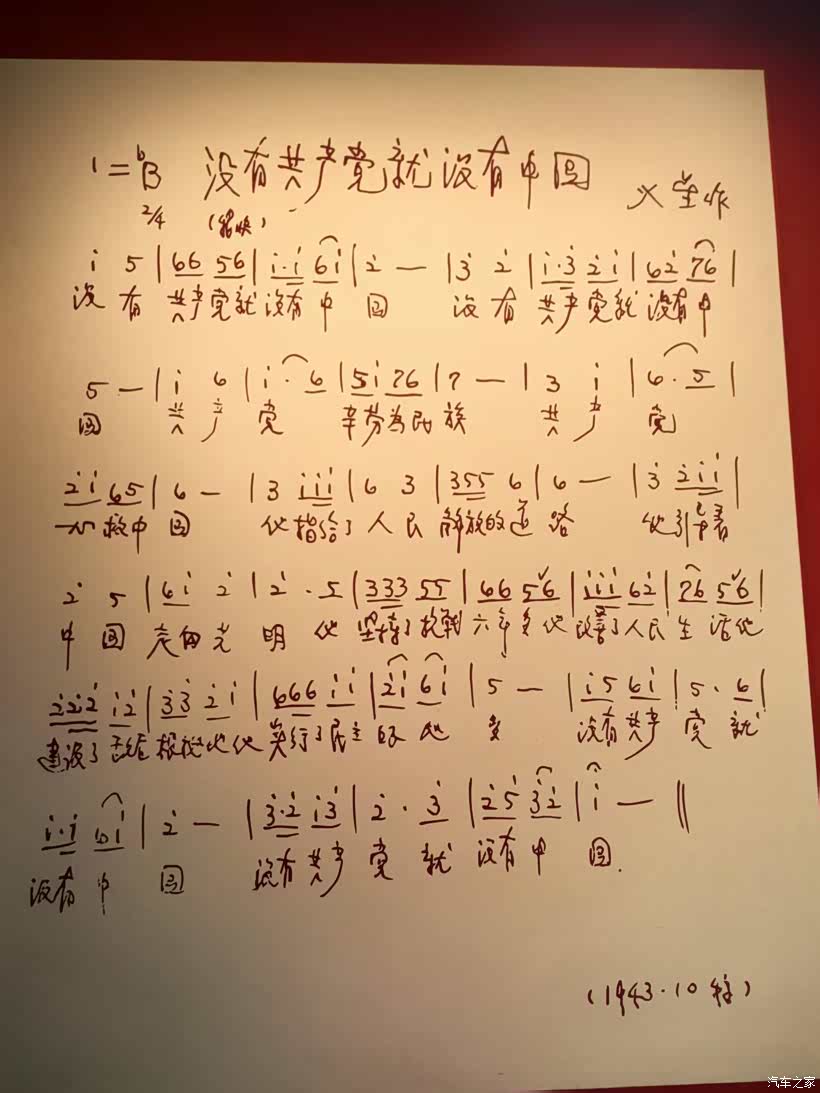 1=♭B 没有共产党就没有中国
2/4 (稍快)
火星作
i 5 | 66 56 | i·i 6i | 2 — | 3 2 | i·3 2i | 62 76 |
没有共产党就没有中国 没有共产党就没有中
5 — | i 6 | i· 6 | 5i 76 | 7 — | 3 i | 6·5 |
国 共产党 辛劳为民族 共产党
2i 65 | 6 — | 3 iii | 6 3 | 355 6 | 6 — | 3 2ii |
一心救中国 他指给了人民解放的道路 他引导着
2 5 | 6i 2 | 2·5 | 333 55 | 66 56 | iii 62 | 76 56 |
中国走向光明 他坚持了抗战六年多他改善了人民生活他
222 i2 | 33 2i | 666 ii | 2i 6i | 5 — | i5 6i | 5·6 |
建设了敌后根据地他实行了民主好处多 没有共产党就
i·i 6i | 2 — | 3·2 i3 | 2·3 | 25 32 | i — ‖
没有中国 没有共产党就没有中国.
(1943.10 稿)
汽车之家